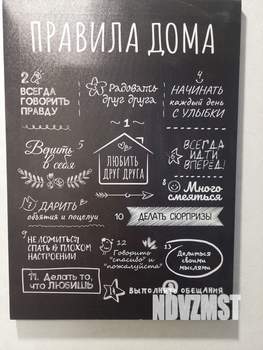 ПРАВИЛА ДОМА
2
ВСЕГДА
ГОВОРИТЬ
ПРАВДУ
Радовать
друг друга
НАЧИНАТЬ
каждый день
С УЛЫБКИ
1
ЛЮБИТЬ
ДРУГ ДРУГА
Верить 5
в себя
ВСЕГДА
ИДТИ
ВПЕРЁД!
ДАРИТЬ
объятия и поцелуи
8 Много
смеяться
10 ДЕЛАТЬ СЮРПРИЗЫ
9 НЕ ЛОЖИТЬСЯ
СПАТЬ В ПЛОХОМ
НАСТРОЕНИИ
12
Говорить
"спасибо" и
"пожалуйста"
13
Делиться
своими
мыслями
11. Делать то,
что ЛЮБИШЬ
ВЫПОЛНЯТЬ ОБЕЩАНИЯ
NDVZMST